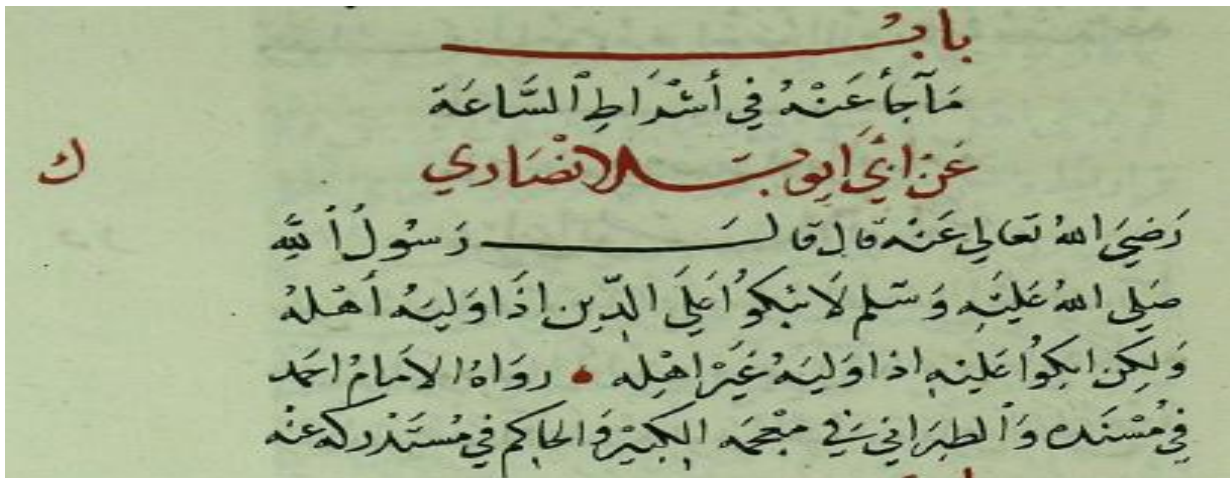 بابُ
مَآجَأَ عَنْهُ فِي أَشْرَاطِ ٱلسَّاعَة
عَنْ اَبِي اَيوبَ الانصَاري
ك
رَضِيَ اللهُ تعَالي عَنْه قال قالَ رَسُولُ ٱللهِ
صَلي اللهُ عَليْهِ وَسَلم لاَ تبكوُا عَلَي الدِّين اِذَا وَليَهُ أَهْلهُ
وَلكِن ابكوُا عَليْهِ اذا وَليَهُ غَيْر اهْلِه • روَاهُ الامَامُ احمد
فِي مُسْندِه وَالطبَرَاني في معْجمه الكبيْر وَالحاكم في مُستَدْركه عنْه